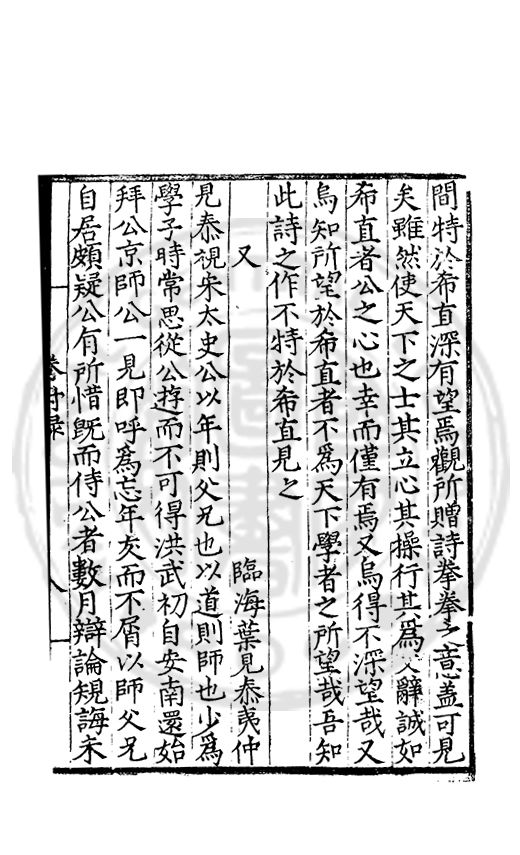 間特於希直深有望焉觀所贈詩拳拳之意盖可見
矣雖然使天下之士其立心其操行其為文辭誠如
希直者公之心也幸而僅有焉又烏得不深望哉又
烏知所望於希直者不為天下學者之所望哉吾知
此詩之作不特於希直見之
又 臨海葉見泰夷仲
見泰視宋太史公以年則父兄也以道則師也少為
學子時常思從公游而不可得洪武初自安南還始
拜公京師公一見即呼為忘年友而不屑以師父兄
自居頗疑公有所惜既而侍公者數月辯論規誨未
卷附录 八